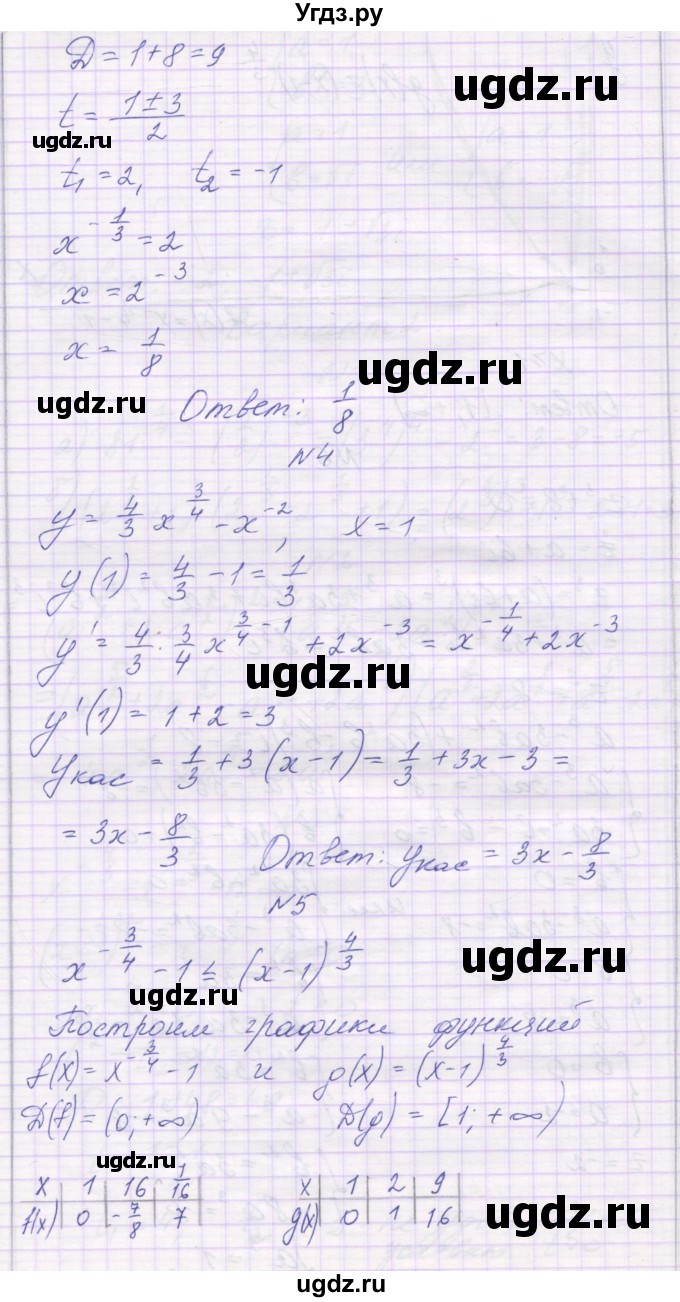 Угдз.ру
D = 1 + 8 = 9
ugdz.ru
t = (1 ± 3)/2
ugdz.ru
t₁ = 2, t₂ = -1
x^(-1/3) = 2
x = 2^(-3)
x = 1/8
ugdz.ru
ugdz.ru
Ответ: 1/8
N4
y = 4/3 x^(3/4) - x^(-2), x = 1
y(1) = 4/3 - 1 = 1/3
y' = 4/3 · 3/4 x^(3/4 - 1) + 2x^(-3) = x^(-1/4) + 2x^(-3)
ugdz.ru
y'(1) = 1 + 2 = 3
yкас = 1/3 + 3(x - 1) = 1/3 + 3x - 3 =
= 3x - 8/3 Ответ: yкас = 3x - 8/3
N5
x^(-3/4) - 1 ≤ (x - 1)^(4/3)
ugdz.ru
ugdz.ru
Построим графики функций
f(x) = x^(-3/4) - 1 и g(x) = (x-1)^(4/3)
D(f) = (0; +∞) D(g) = [1; +∞)
x | 1 | 16 | 1/16 x | 1 | 2 | 9
f(x) | 0 | -7/8 | 7 g(x) | 0 | 1 | 16
ugdz.ru
ugdz.ru
ugdz.ru